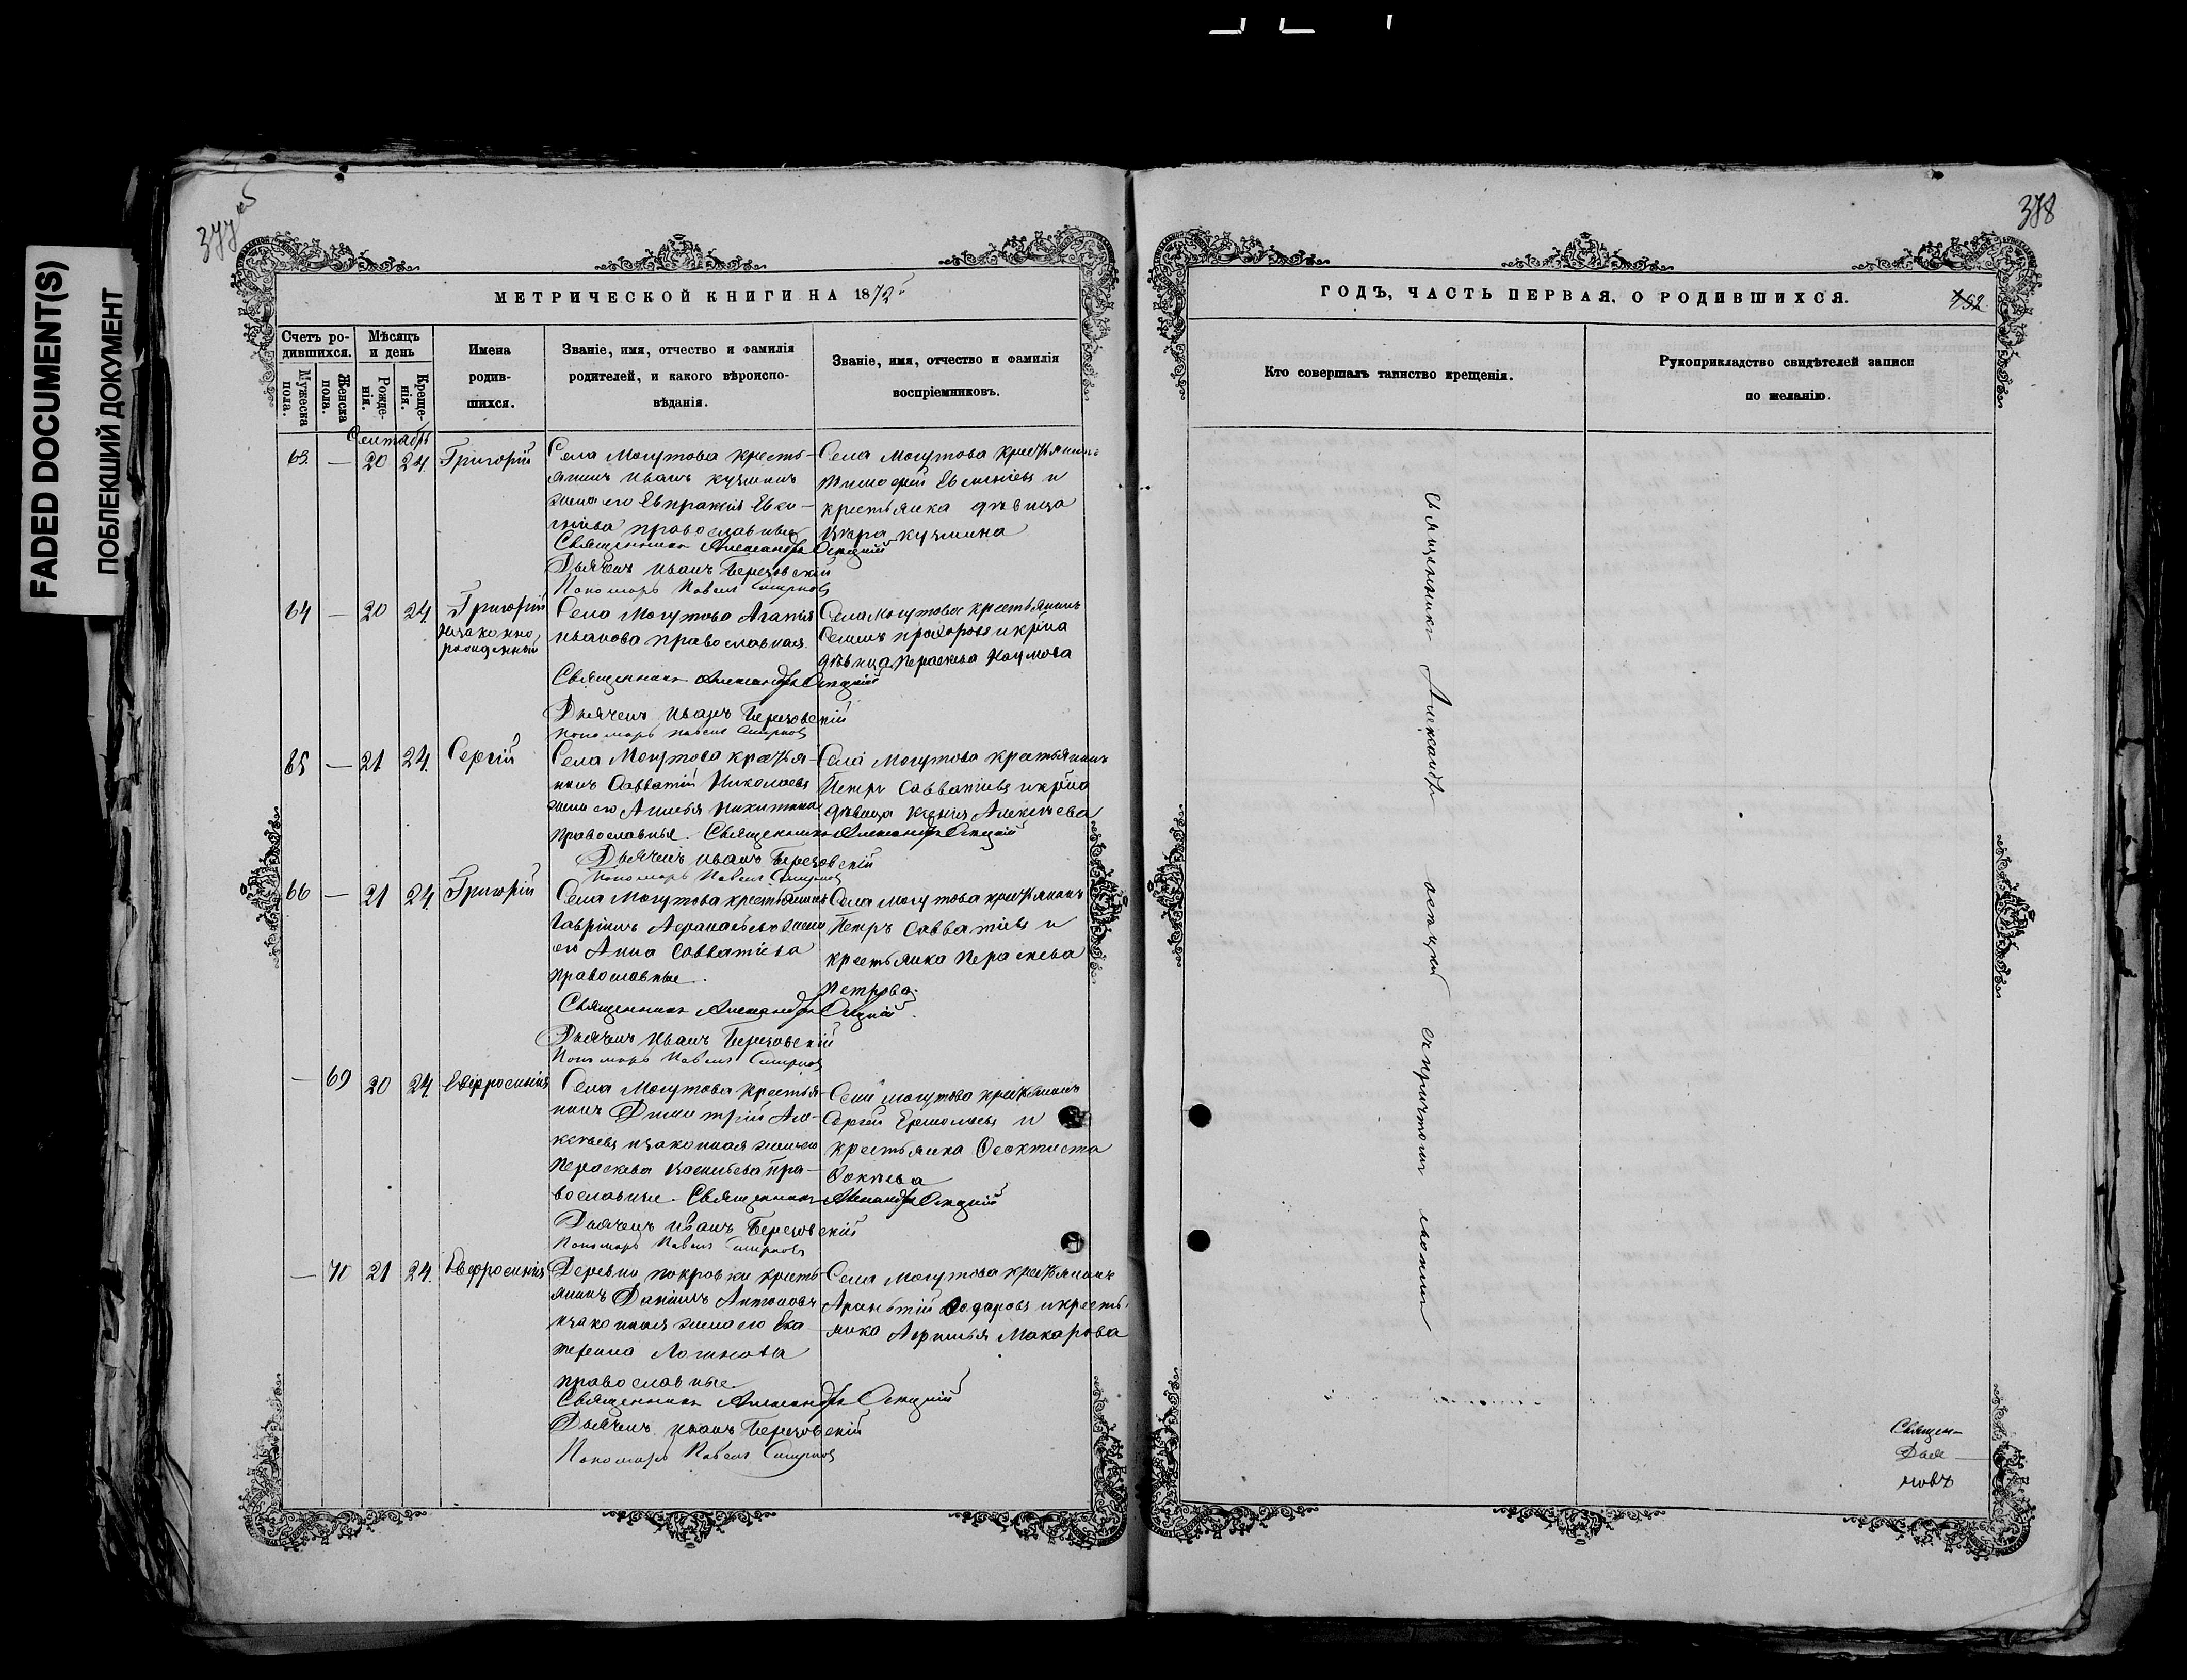 FADED DOCUMENT(S)
ПОБЛЕКШИЙ ДОКУМЕНТ
377 об
МЕТРИЧЕСКОЙ КНИГИ НА 1872
Счетъ родившихся.
Мужеска пола.
Женска пола.
Мѣсяцъ и день
Рожденія.
Крещенія.
Имена родившихся.
Званіе, имя, отчество и фамилія
родителей, и какого вѣроиспо-
вѣданія.
Званіе, имя, отчество и фамилія
воспріемниковъ.
Сентябрь
63. — 20 24 Григорій
Села Могутова кресть-
янинъ Иванъ Кузминъ
жена его Евпраксія Евси-
гніева православные
Села Могутова крестьянинъ
Тимофей Евсигніевъ и
крестьянка дѣвица
Кузмина
Священникъ Александръ
Дьячекъ Иванъ Березовскій
Пономарь Павелъ Смирновъ
64 — 20 24 Григорій
незаконно
рожденный
Села Могутова Агапія
Иванова православная.
Села Могутова крестьянинъ
Семенъ Прохоровъ и кр-на
дѣвица Параскева Наумова
Священникъ Александръ
Дьячекъ Иванъ Березовскій
Пономарь Павелъ Смирновъ
65 — 21 24. Сергій
Села Могутова крестья-
нинъ Савватій Николаевъ
жена его Никитина
православныя.
Села Могутова крестьянинъ
Петръ Савватіевъ и кр-на
дѣвица Ксенія Алексѣева
Священникъ Александръ
Дьячекъ Иванъ Березовскій
Пономарь Павелъ Смирновъ
66 — 21 24. Григорій
Села Могутова крестьянинъ
Гавріилъ Афанасьевъ жена
его Анна Савватіева
православные.
Села Могутова крестьянинъ
Петръ Савватіевъ и
крестьянка Параскева
Петрова.
Священникъ Александръ
Дьячекъ Иванъ Березовскій
Пономарь Павелъ Смирновъ
— 69 20 24. Евфросинія
Села Могутова крестья-
нинъ Димитрій Але-
ксѣевъ и законная жена его
Параскева Васильева пра-
вославные.
Села Могутова крестьянинъ
Сергей Ермолаевъ и
крестьянка Феоктиста
Фокиева
Священникъ Александръ
Дьячекъ Иванъ Березовскій
Пономарь Павелъ Смирновъ
— 70 21 24. Евфросинія
Деревни Покровки кресть-
янинъ Даніилъ Антоновъ
и законная жена его Ека-
терина Логинова
православные
Села Могутова крестьянинъ
и кресть-
янка Макарова
Священникъ Александръ
Дьячекъ Иванъ Березовскій
Пономарь Павелъ Смирновъ
378
ГОДЪ, ЧАСТЬ ПЕРВАЯ, О РОДИВШИХСЯ.
Кто совершалъ таинство крещенія.
Рукоприкладство свидѣтелей записи
по желанію.
Священникъ Александръ съ причтомъ
Священ-
Дья
новъ